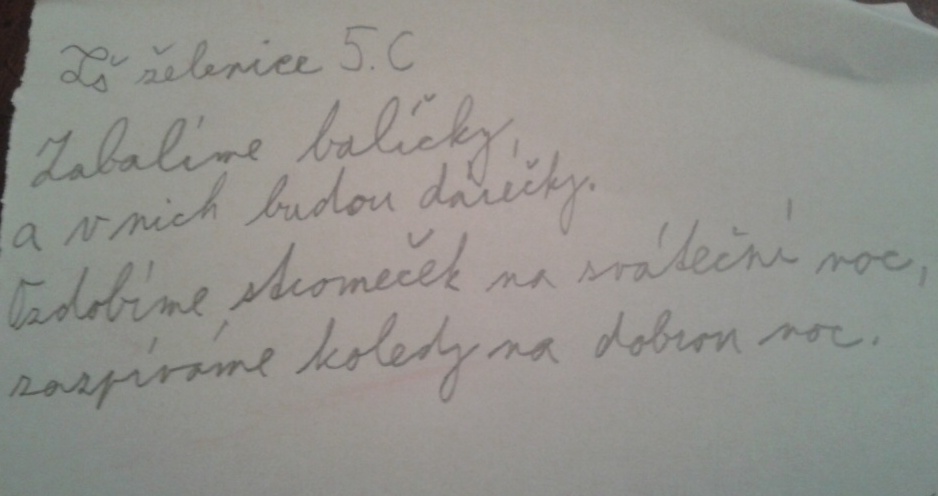 Zš želenice 5.C
Zabalíme balíčky,
a v nich budou dárečky.
Ozdobíme stromeček na sváteční noc,
zazpíváme koledy na dobrou noc.